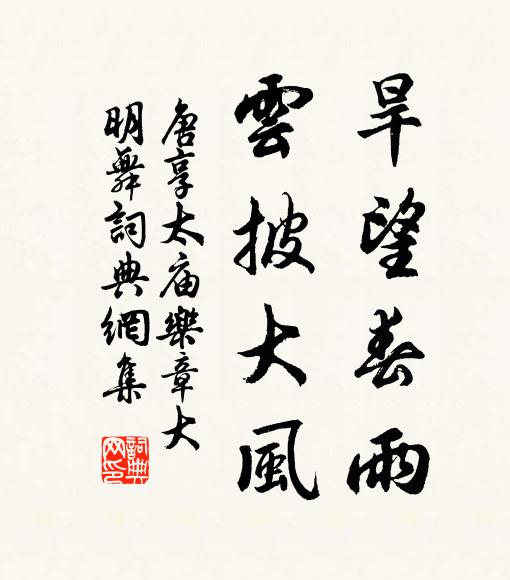 旱望春雨
雲披大風
唐享太庙樂章大
明舞詞典網集
詞典
网印